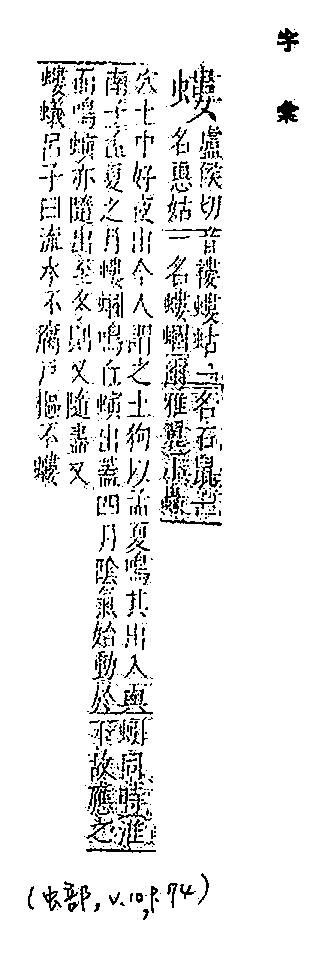 字彙
螻
盧侯切音褸螻蛄一名石鼠一
名惠姑一名螻蟈爾雅翼螻
穴土中好夜出今人謂之土狗以孟夏鳴其出入與蚓同時淮
南子孟夏之月螻蟈鳴丘螾出蓋四月陰氣始動於下故應之
而鳴螾亦隨出至冬則又隨蟄又
螻蟻呂子曰流水不腐戶樞不螻
(虫部, v.10, p.74)